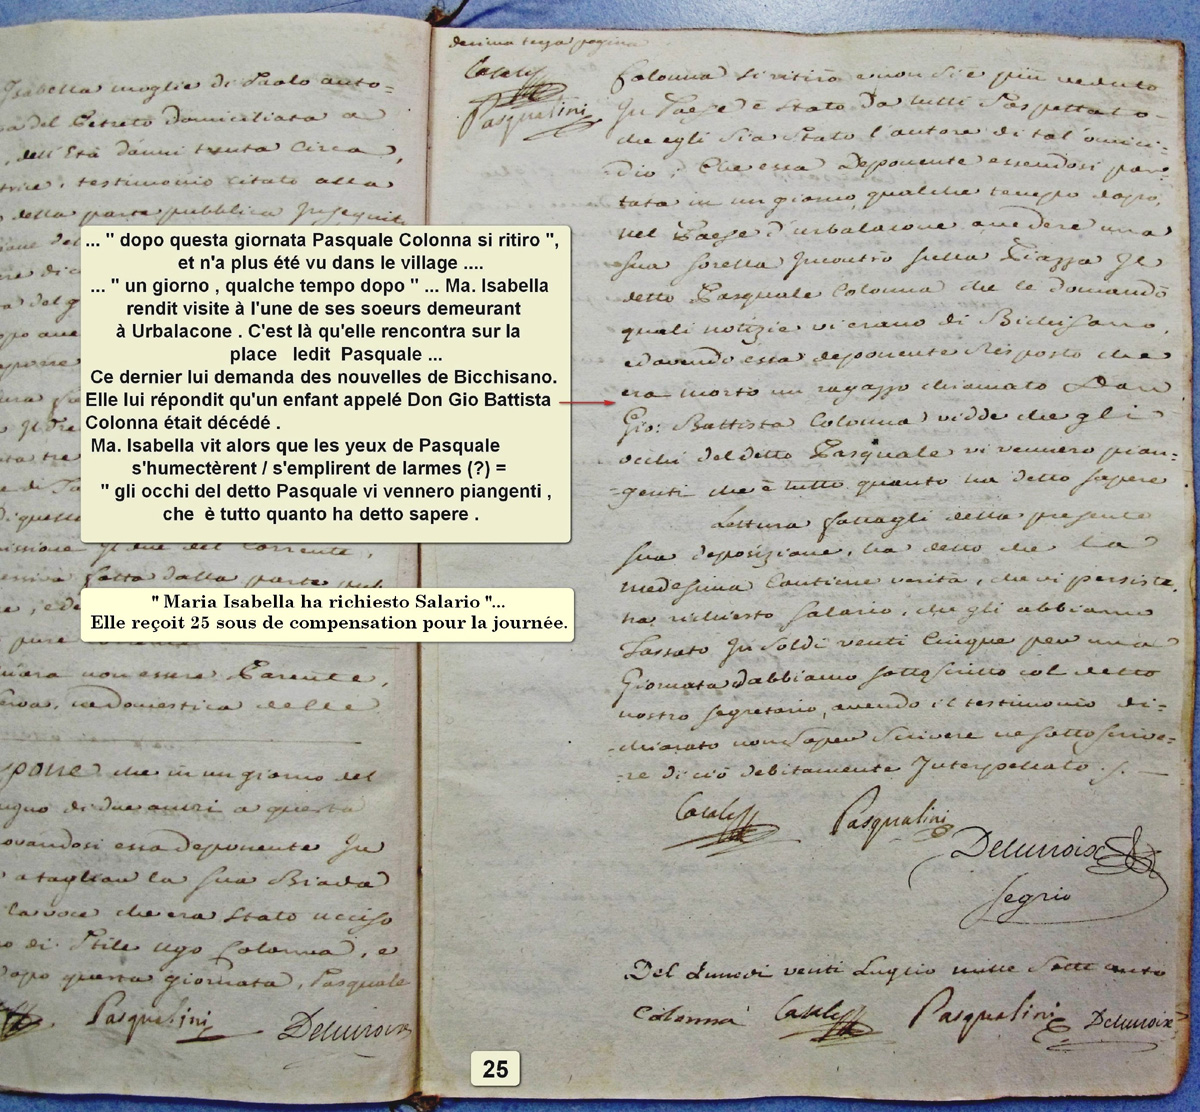 Isabella moglie di Paolo anto=
del Petreto domiciliata a
dell'Età danni trenta Circa,
testimonio citato alla
della parte pubblica
... " dopo questa giornata Pasquale Colonna si ritiro ",
et n'a plus été vu dans le village ....
... " un giorno , qualche tempo dopo " ... Ma. Isabella
rendit visite à l'une de ses soeurs demeurant
à Urbalacone . C'est là qu'elle rencontra sur la
place ledit Pasquale ...
Ce dernier lui demanda des nouvelles de Bicchisano.
Elle lui répondit qu'un enfant appelé Don Gio Battista
Colonna était décédé .
Ma. Isabella vit alors que les yeux de Pasquale
s'humectèrent / s'emplirent de larmes (?) =
" gli occhi del detto Pasquale vi vennero piangenti ,
che è tutto quanto ha detto sapere .
fatta dalla parte
" Maria Isabella ha richiesto Salario "...
Elle reçoit 25 sous de compensation pour la journée.
non essere Parente,
ne domestica delle
che in un giorno del
di due anni a questa
essa deponente In
a tagliar la sua Biada
la voce che era Stato ucciso
di Stile Ugo Colonna, e
dopo questa giornata, Pasquale
Pasqualini Delacroix
decima terza pagina
Pasqualini
Colonna si ritirò e non si è più veduto
In Paese è Stato da tutti Sospettato
che egli Sia Stato l'autore di tal'omici=
=dio; Che essa Deponente essendosi por=
tata in un giorno, qualche tempo dopo,
nel Paese d'urbalacone a vedere una
sua sorella Incontrò sulla Piazza Il
detto Pasquale Colonna che le domandò
quali notizie vi erano di Bichisano,
ed avendo essa deponente Risposto che
era morto un ragazzo chiamato Don
Gio: Battista Colonna vidde che gli
occhi del detto Pasquale vi vennero pian=
=genti che è tutto quanto ha detto sapere
Lettura fattagli della presente
sua deposizione, ha detto che La
medesima Contiene verità, che vi persiste,
ha richiesto salario, che gli abbiamo
Tassato In Soldi venti Cinque per una
Giornata d'abbiamo sottoscritto col detto
nostro segretario, avendo il testimonio di=
=chiarato non Saper Scrivere ne sottoscrive=
=re di ciò debitamente Interpellato
Pasqualini
Delacroix
Segrio
Del Lunedì venti Luglio mille Sette cento
Colonna Pasqualini Delacroix
25